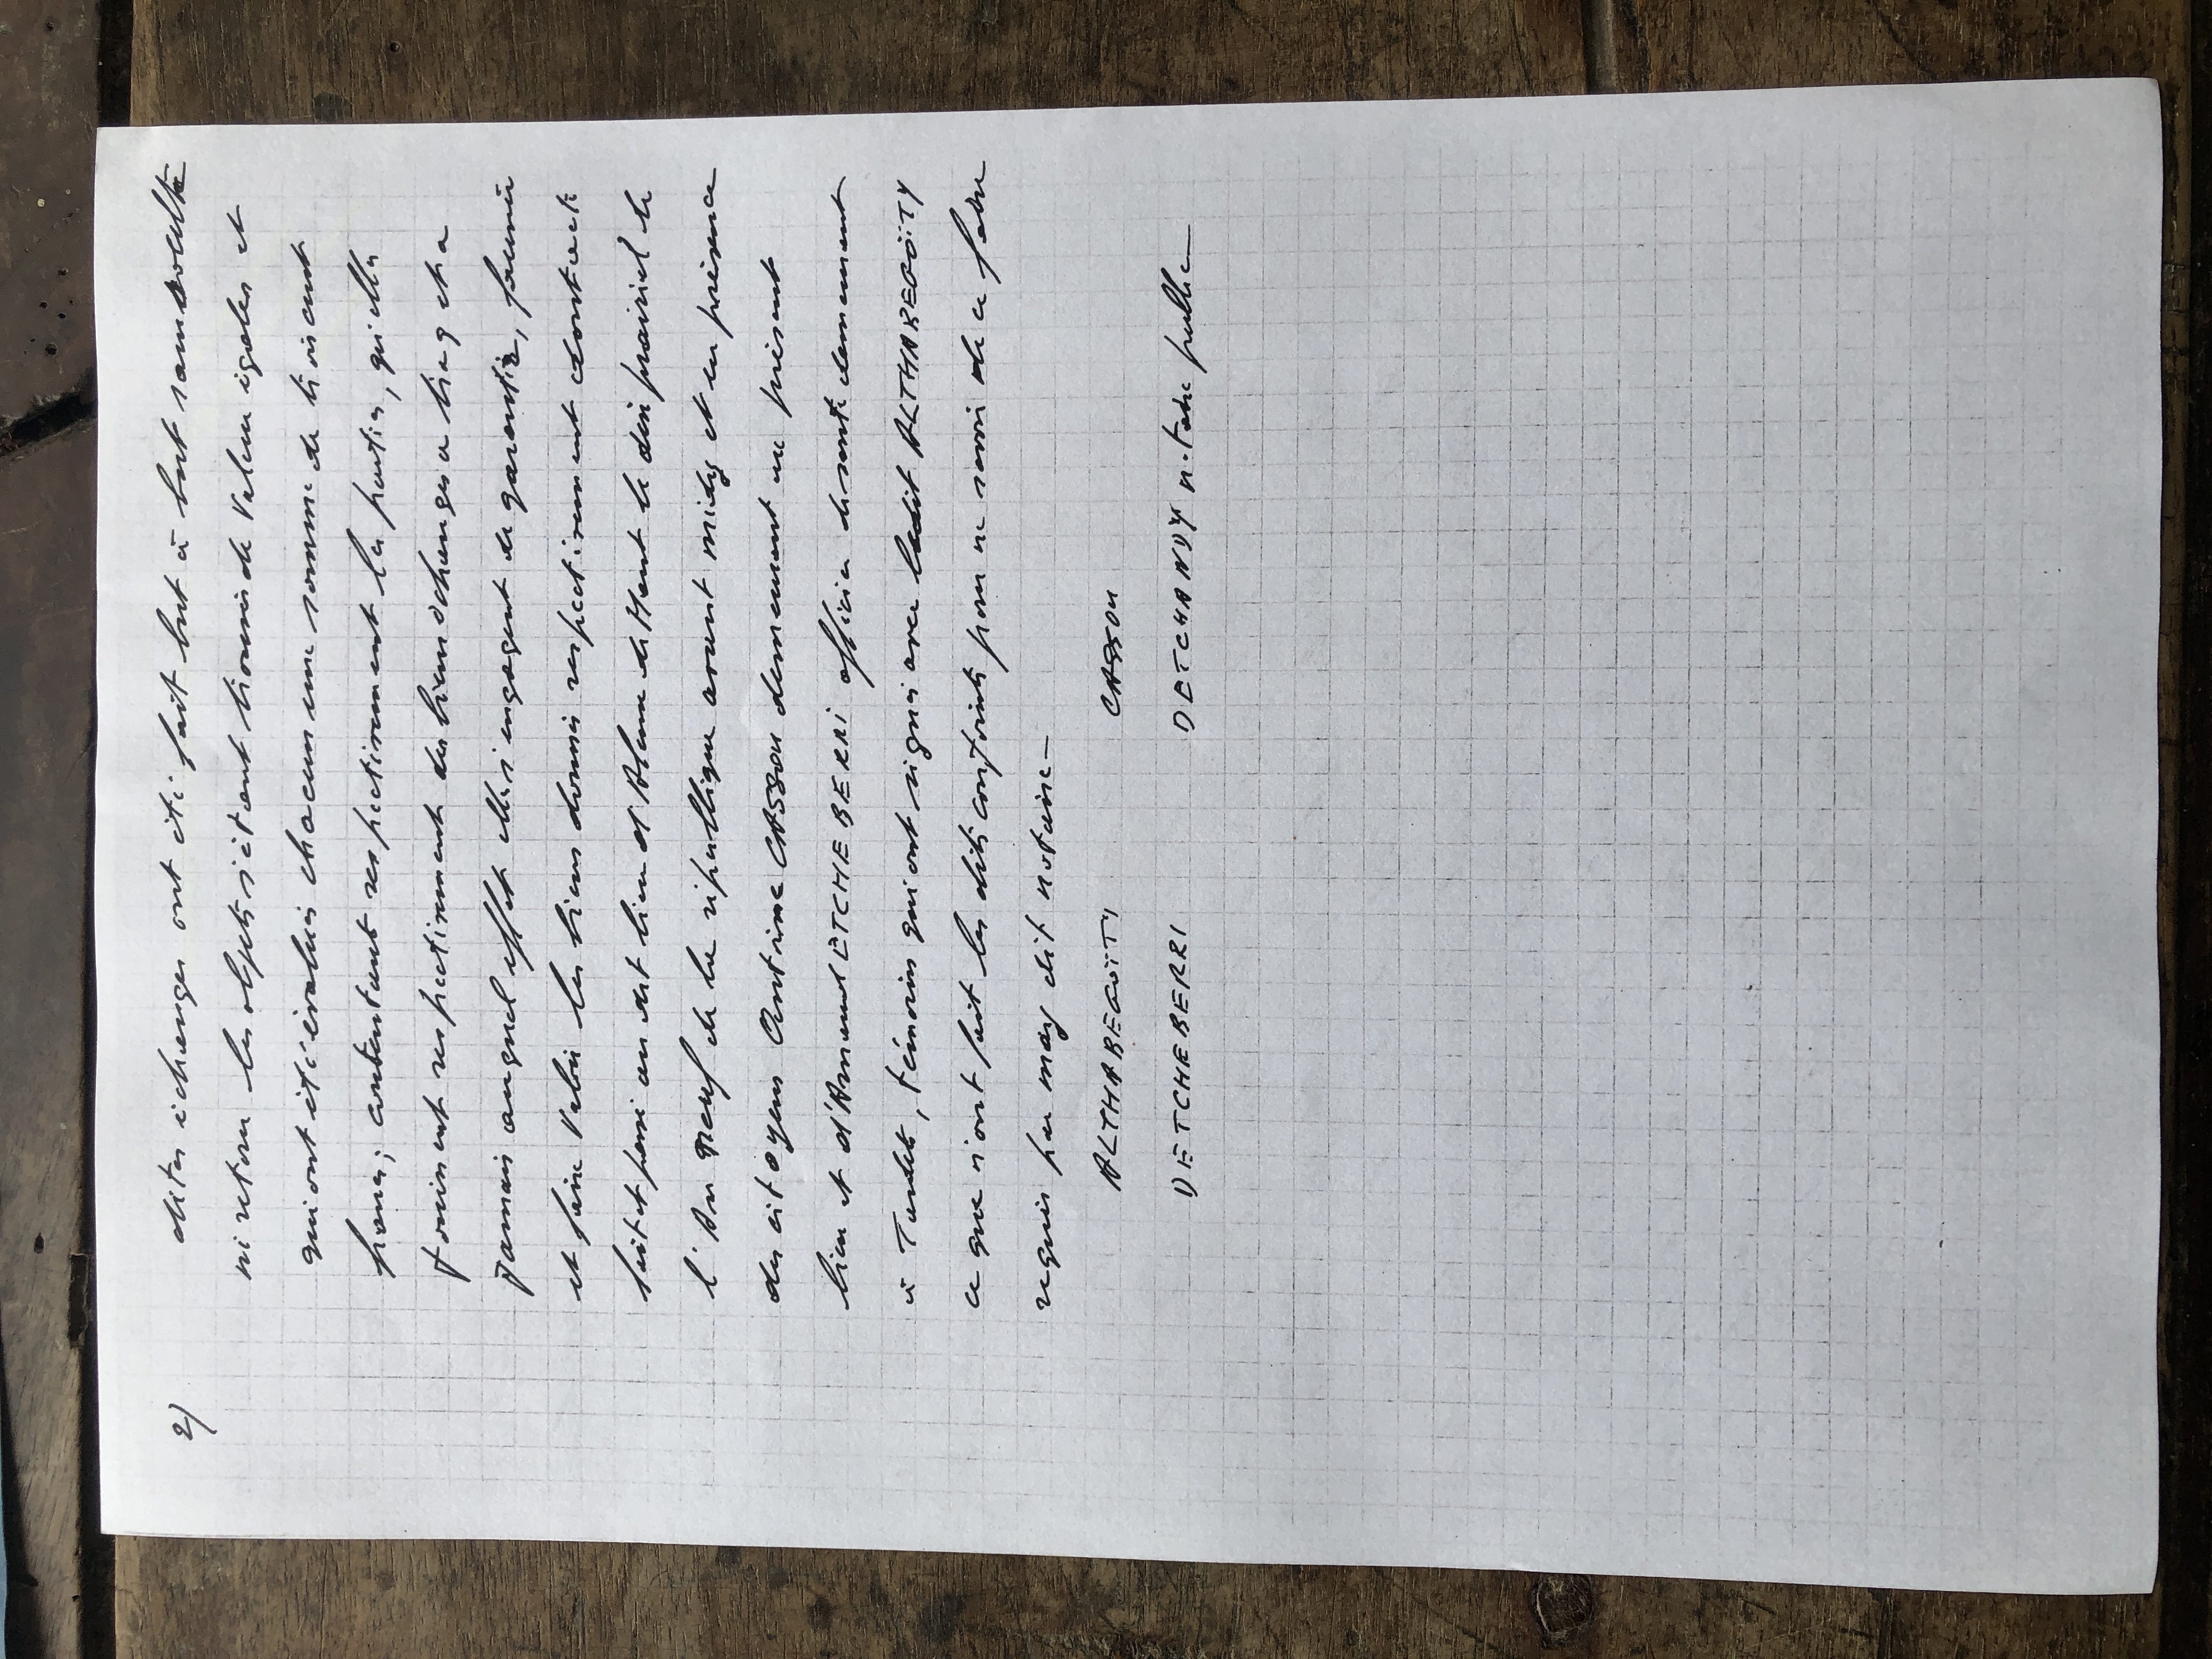 2)
dites échanges ont été fait but à but sans soulte
ni retour les objets s'étant trouvés de valeur égales et
qui ont été évalués chacun une somme de trois cent
francs; consentant respectivement les parties, qu'elles
jouissent respectivement des biens échangés a
jamais auquel effet elles s'engagent de garantir, fournir
et faire valoir les biens donnés respectivement contracté
fait et passé au dit lieu d'Alzure dittant le dix prairial de
l'An neuf de la république avant midy et en présence
des citoyens Arnt CASSOU demeurant au présent
lieu et d'Arnaud ETCHEBERRI officier de santé demeurant
à Tardets, témoins qui ont signés avec ledit ALTHABEGOÏTY
ce que n'ont fait les dits conjoints pour ne savoir de ce faire
requis par moy dit notaire—
ALTHABEGOÏTY CASSOU
DETCHEBERRI DETCHANDY notaire public—